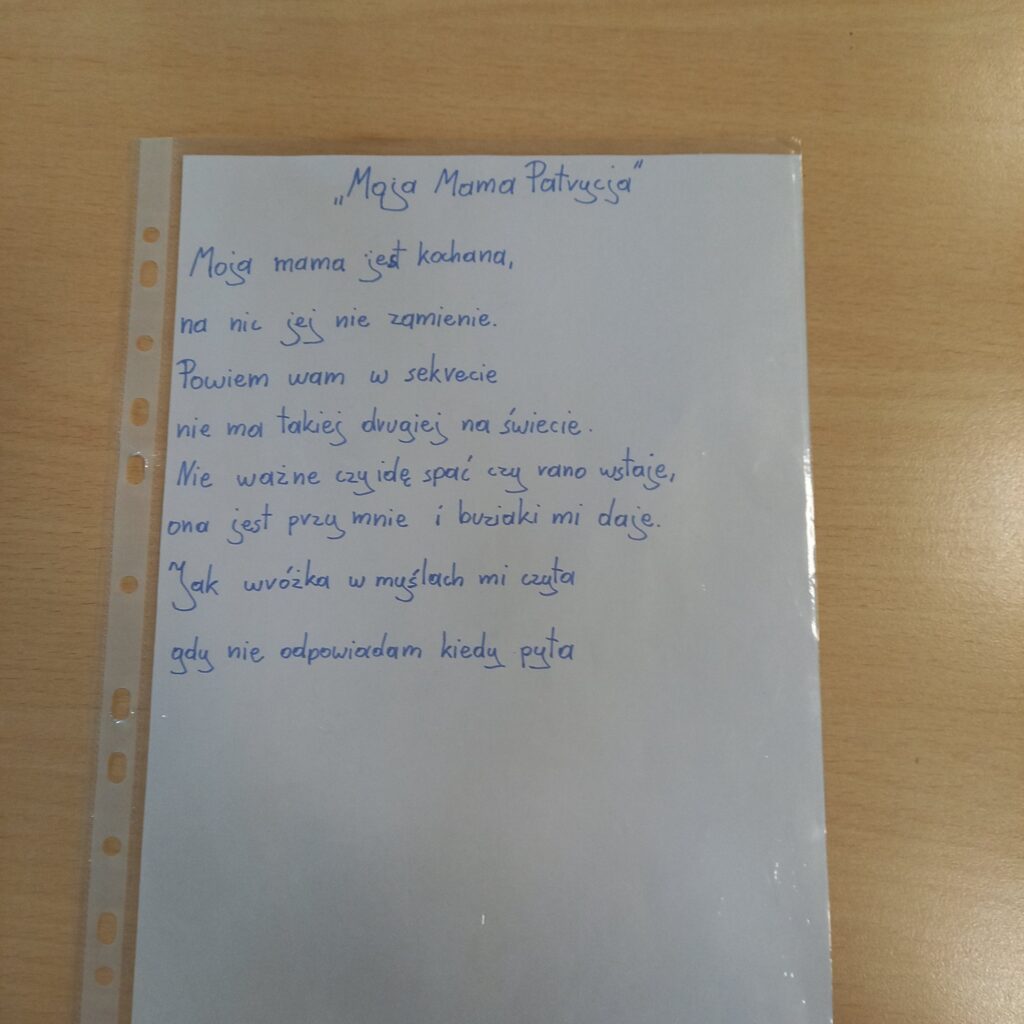 „Moja Mama Patrycja"
Moja mama jest kochana,
na nic jej nie zamienie.
Powiem wam w sekrecie
nie ma takiej drugiej na świecie.
Nie ważne czy idę spać czy rano wstaje,
ona jest przy mnie i buziaki mi daje.
Jak wróżka w myślach mi czyta
gdy nie odpowiadam kiedy pyta